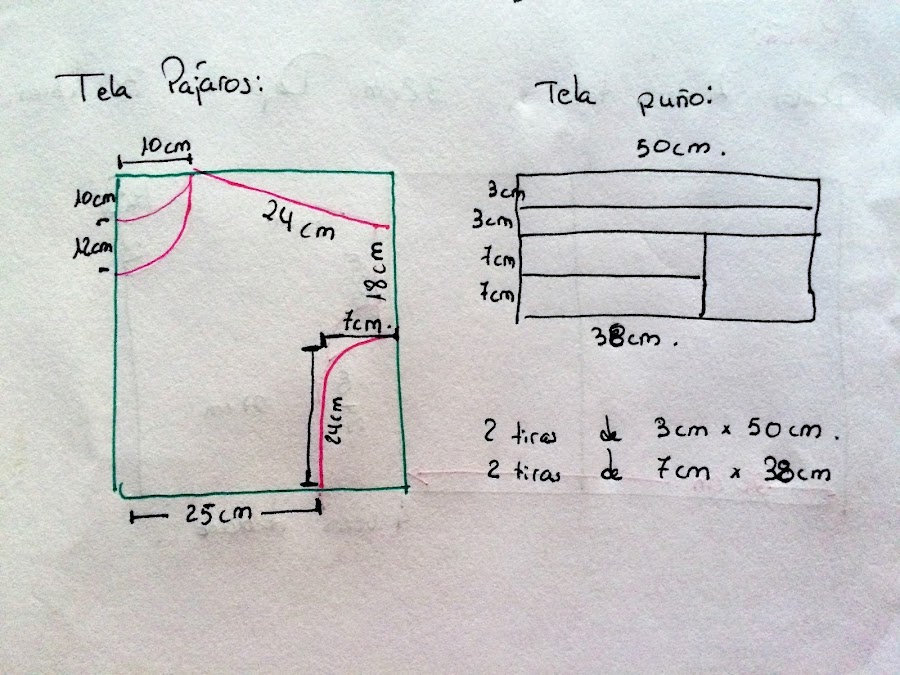 Tela Pájaros:
10cm
10cm
12cm
24cm
18cm
7cm.
24cm
25cm
Tela puño:
50cm.
3cm
3cm
7cm
7cm
38cm.
2 tiras de 3cm x 50cm.
2 tiras de 7cm x 38cm